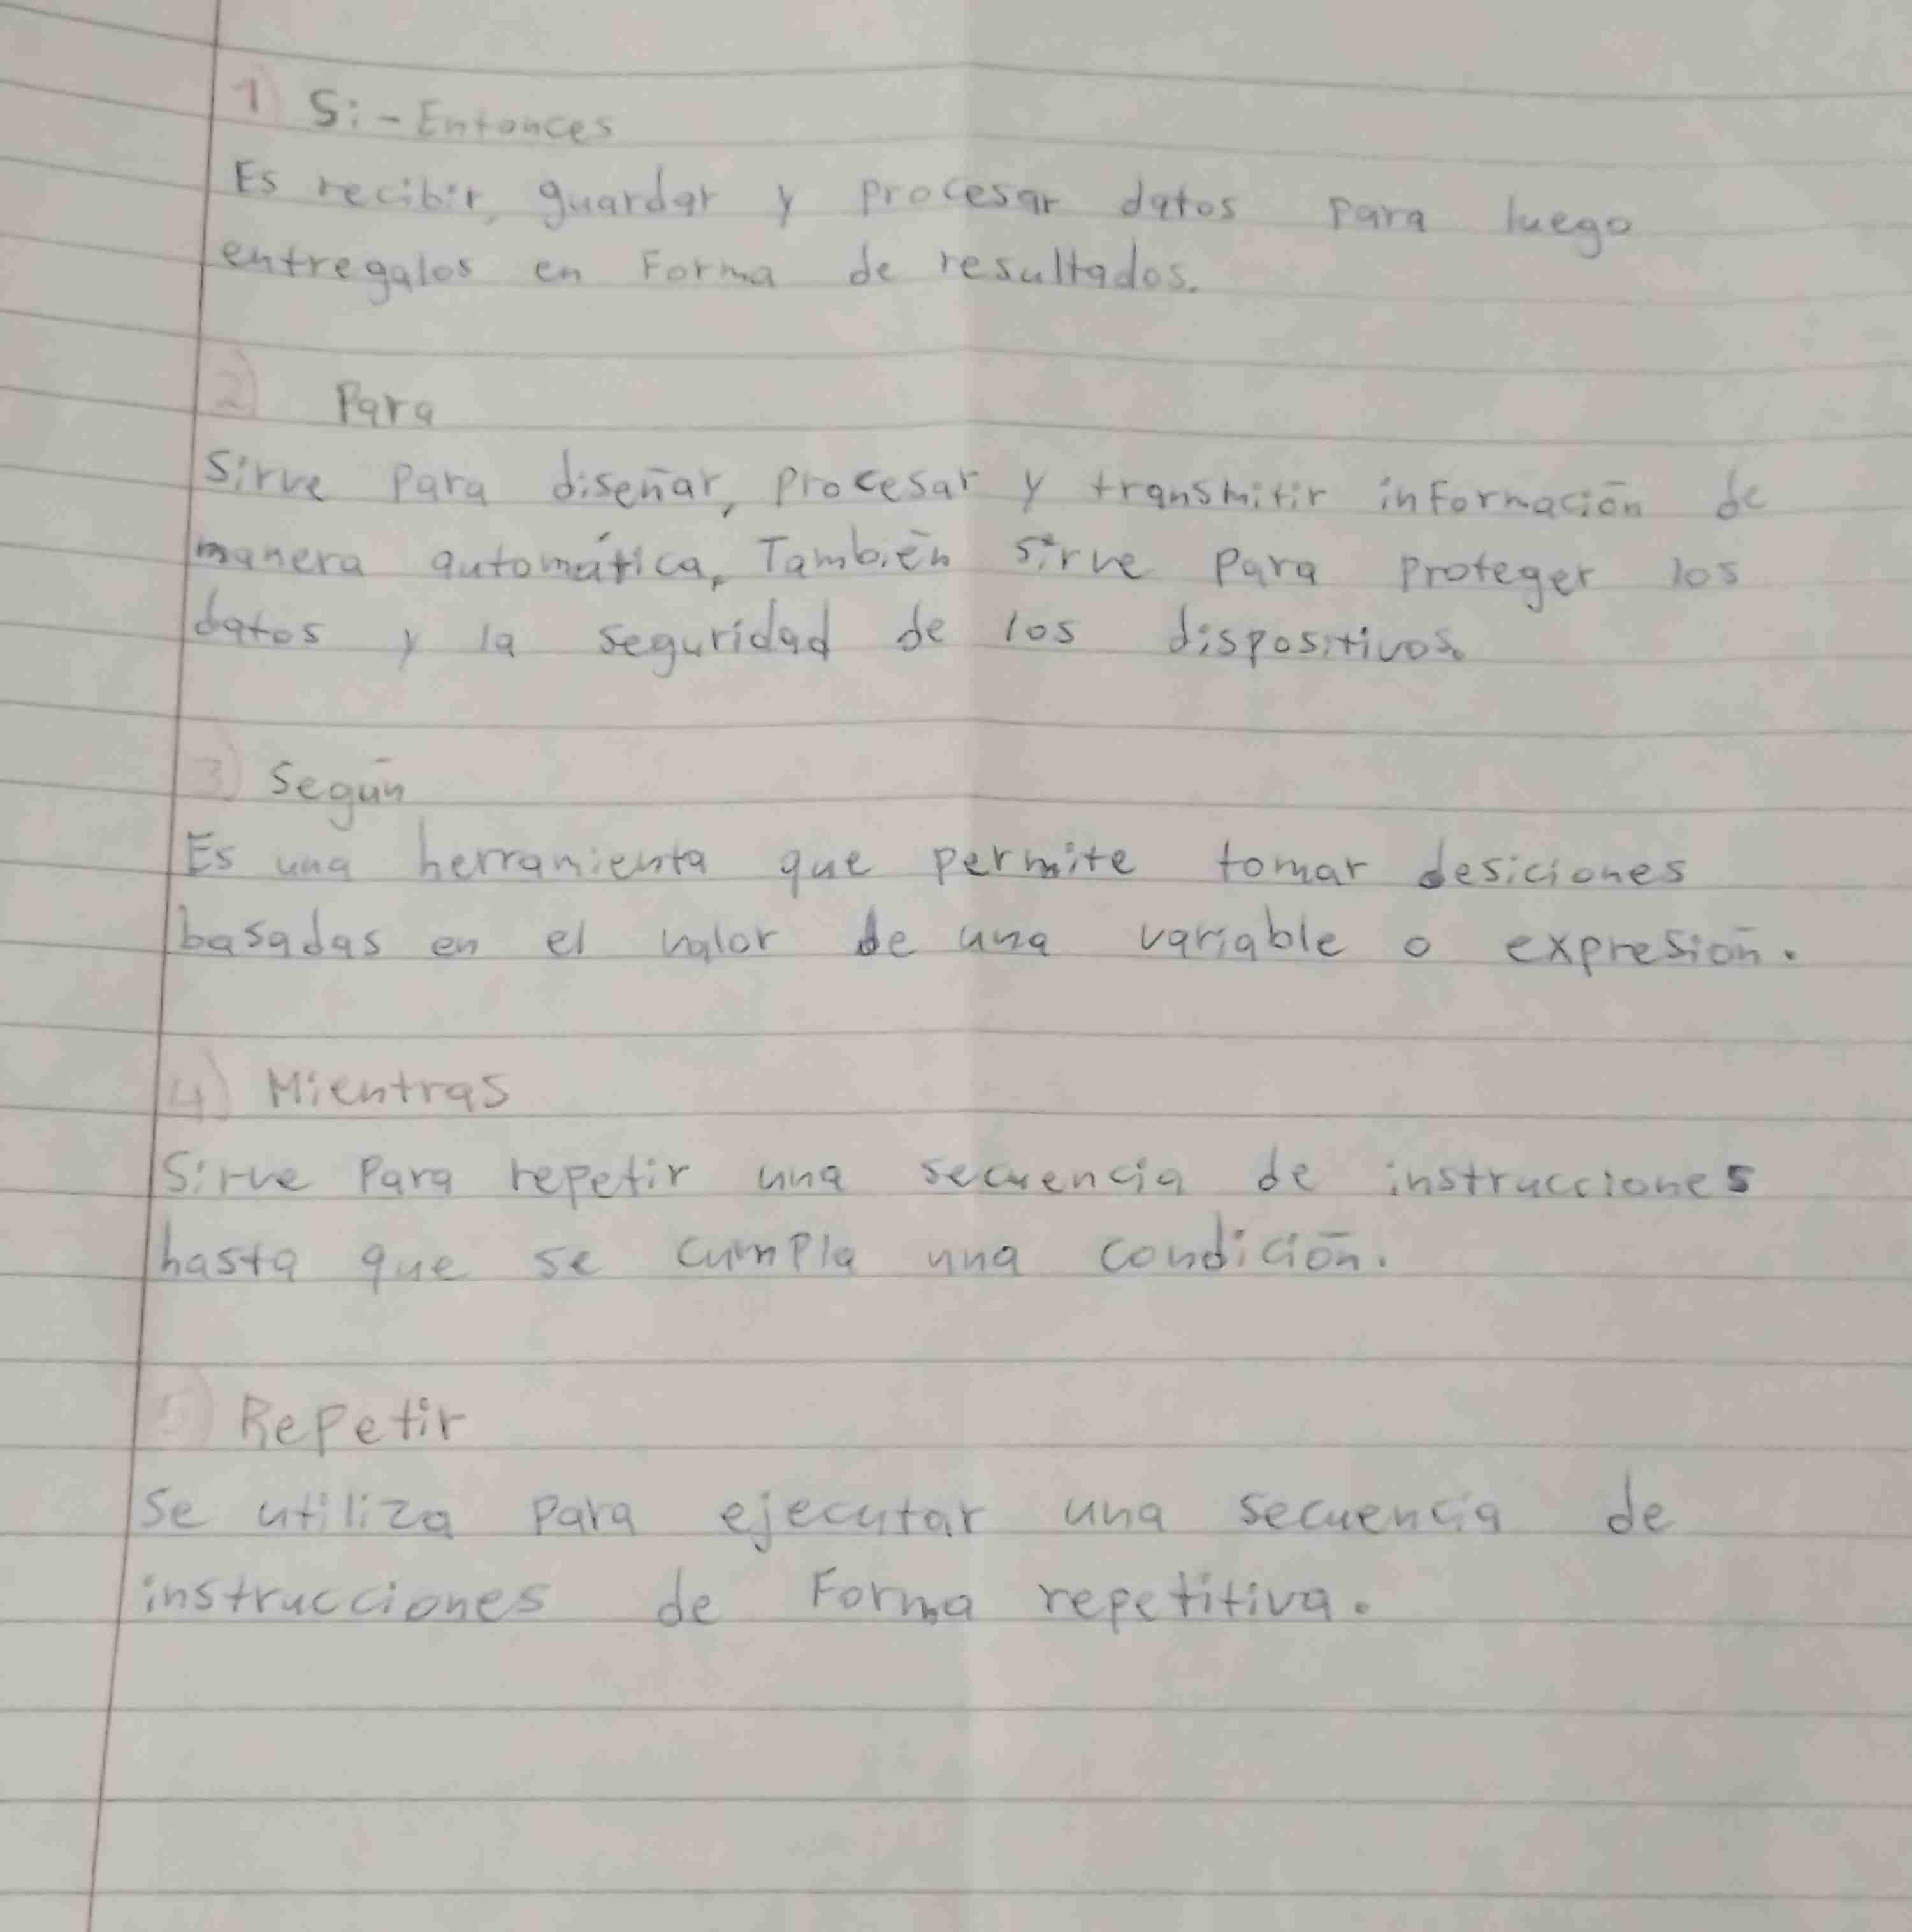 1) Si - Entonces
Es recibir, guardar y procesar datos para luego
entregalos en Forma de resultados.
2) Para
Sirve Para diseñar, procesar y transmitir información de
manera automática, También sirve para proteger los
datos y la seguridad de los dispositivos.
3) Según
Es una herramienta que permite tomar desiciones
basadas en el valor de una variable o expresión.
4) Mientras
Sirve Para repetir una secuencia de instrucciones
hasta que se cumpla una condición.
5) Repetir
Se utiliza para ejecutar una secuencia de
instrucciones de Forma repetitiva.